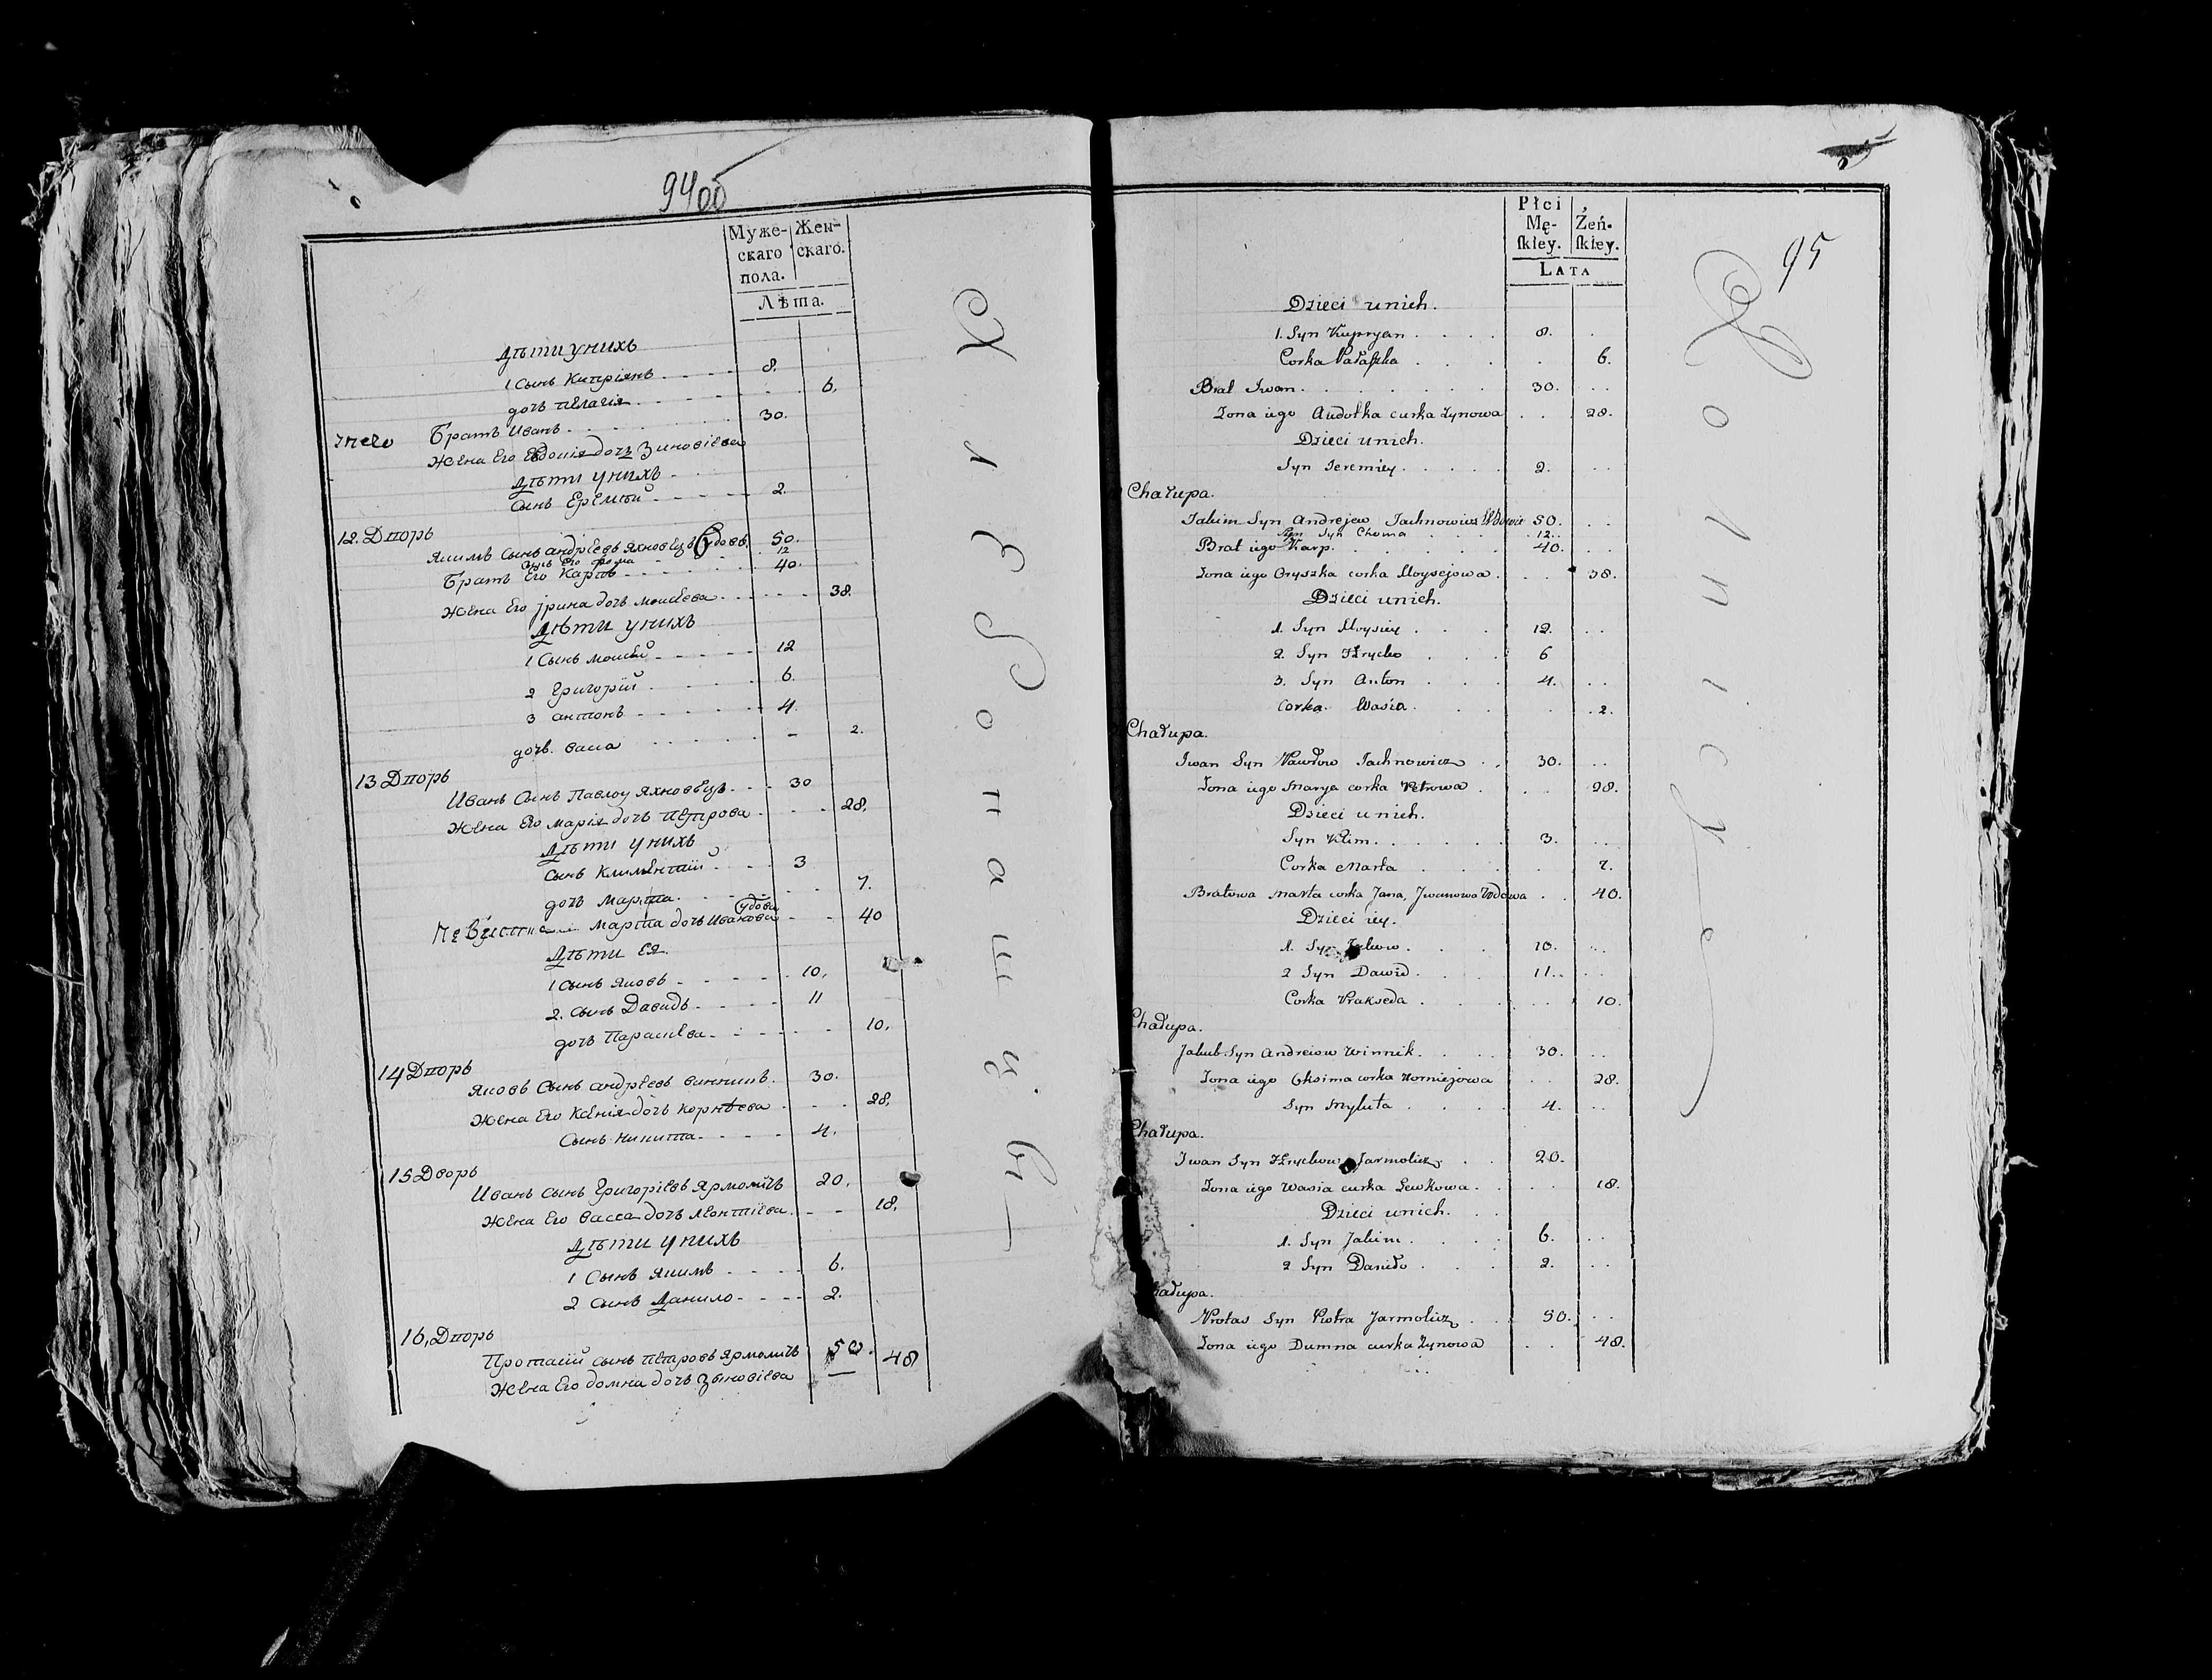 94об
Муже-
скаго
пола.
Жен-
скаго.
Лѣта.
Дѣти унихъ
1 Сынъ Кипріянъ 8.
дочь Пелагія 6.
унего Братъ Иванъ 30.
Жена Его Евдокія дочь Зиновіева
Дѣти унихъ
Сынъ Еремѣй 2.
12. Дворъ
Якимъ Сынъ Андреевъ Яхновецъ Вдовъ. 50.
Сынъ Его Фома 12
Братъ Его Карпъ 40.
Жена Его Ірина дочь Моисѣева 38.
Дѣти унихъ
1 Сынъ Моисѣй 12
2 Григорій 6.
3 Антонъ 4.
дочь Васса - 2.
13 Дворъ
Иванъ Сынъ Павлоу Яхновецъ 30
Жена Его Марія дочь Петрова 28.
Дѣти унихъ
Сынъ Климентій 3
дочь Марѳа 7.
Невѣстка Марѳа дочь Иванова вдова 40
Дѣти Ея.
1 Сынъ Яковъ 10.
2. Сынъ Давидъ 11
дочь Параскева 10.
14 Дворъ
Яковъ Сынъ Андреевъ Винникъ. 30.
Жена Его Ксенія дочь Корнѣева 28.
Сынъ Никита 4.
15 Дворъ
Иванъ Сынъ Григоріевъ Ярмоличъ 20.
Жена Его Васса дочь Леонтіева 18.
Дѣти унихъ
1 Сынъ Якимъ 6.
2 Сынъ Данило 2.
16, Дворъ
Протасій сынъ Петровъ Ярмоличъ 50.
Жена Его Домна дочь Зѣновіева 48
95
Płci
Mę-
skiey.
Żeń-
skiey.
LATA
Dzieci unich.
1. Syn Kupryan 8.
Corka Pałaszka 6.
Brat Iwan 30.
Zona iego Audotka curka Zynowa 28.
Dzieci unich.
Syn Jeremiey 2.
Chałupa.
Jakim Syn Andrejew Jachnowicz Wdowiec 50.
Syn Choma 12.
Brat iego Karp. 40.
Zona iego Oryszka corka Moysejowa 38.
Dzieci unich.
1. Syn Moysiey 12.
2. Syn Hrycko 6
3. Syn Anton 4.
Corka Wasia 2.
Chałupa.
Iwan Syn Pawłow Jachnowicz 30.
Zona iego Marya corka Petrowa 28.
Dzieci unich.
Syn Klim 3.
Corka Marta 7.
Bratowa Marta corka Jana, Jwanowa Wdowa 40.
Dzieci iey.
1. Syn 10.
2 Syn Dawid 11.
Corka Prakseda 10.
Chałupa.
Jakub Syn Andreiow Winnik 30.
Zona iego Oksima corka Korniejowa 28.
Syn Mykita 4.
Chałupa.
Iwan Syn Hryckow Jarmolicz 20.
Zona iego Wasia curka Lewkowa 18.
Dzieci unich.
1. Syn Jakim 6.
2 Syn Daniło 2.
Chałupa.
Protas Syn Piotra Jarmolicz 50.
Zona iego Dumna curka Zynowa 48.